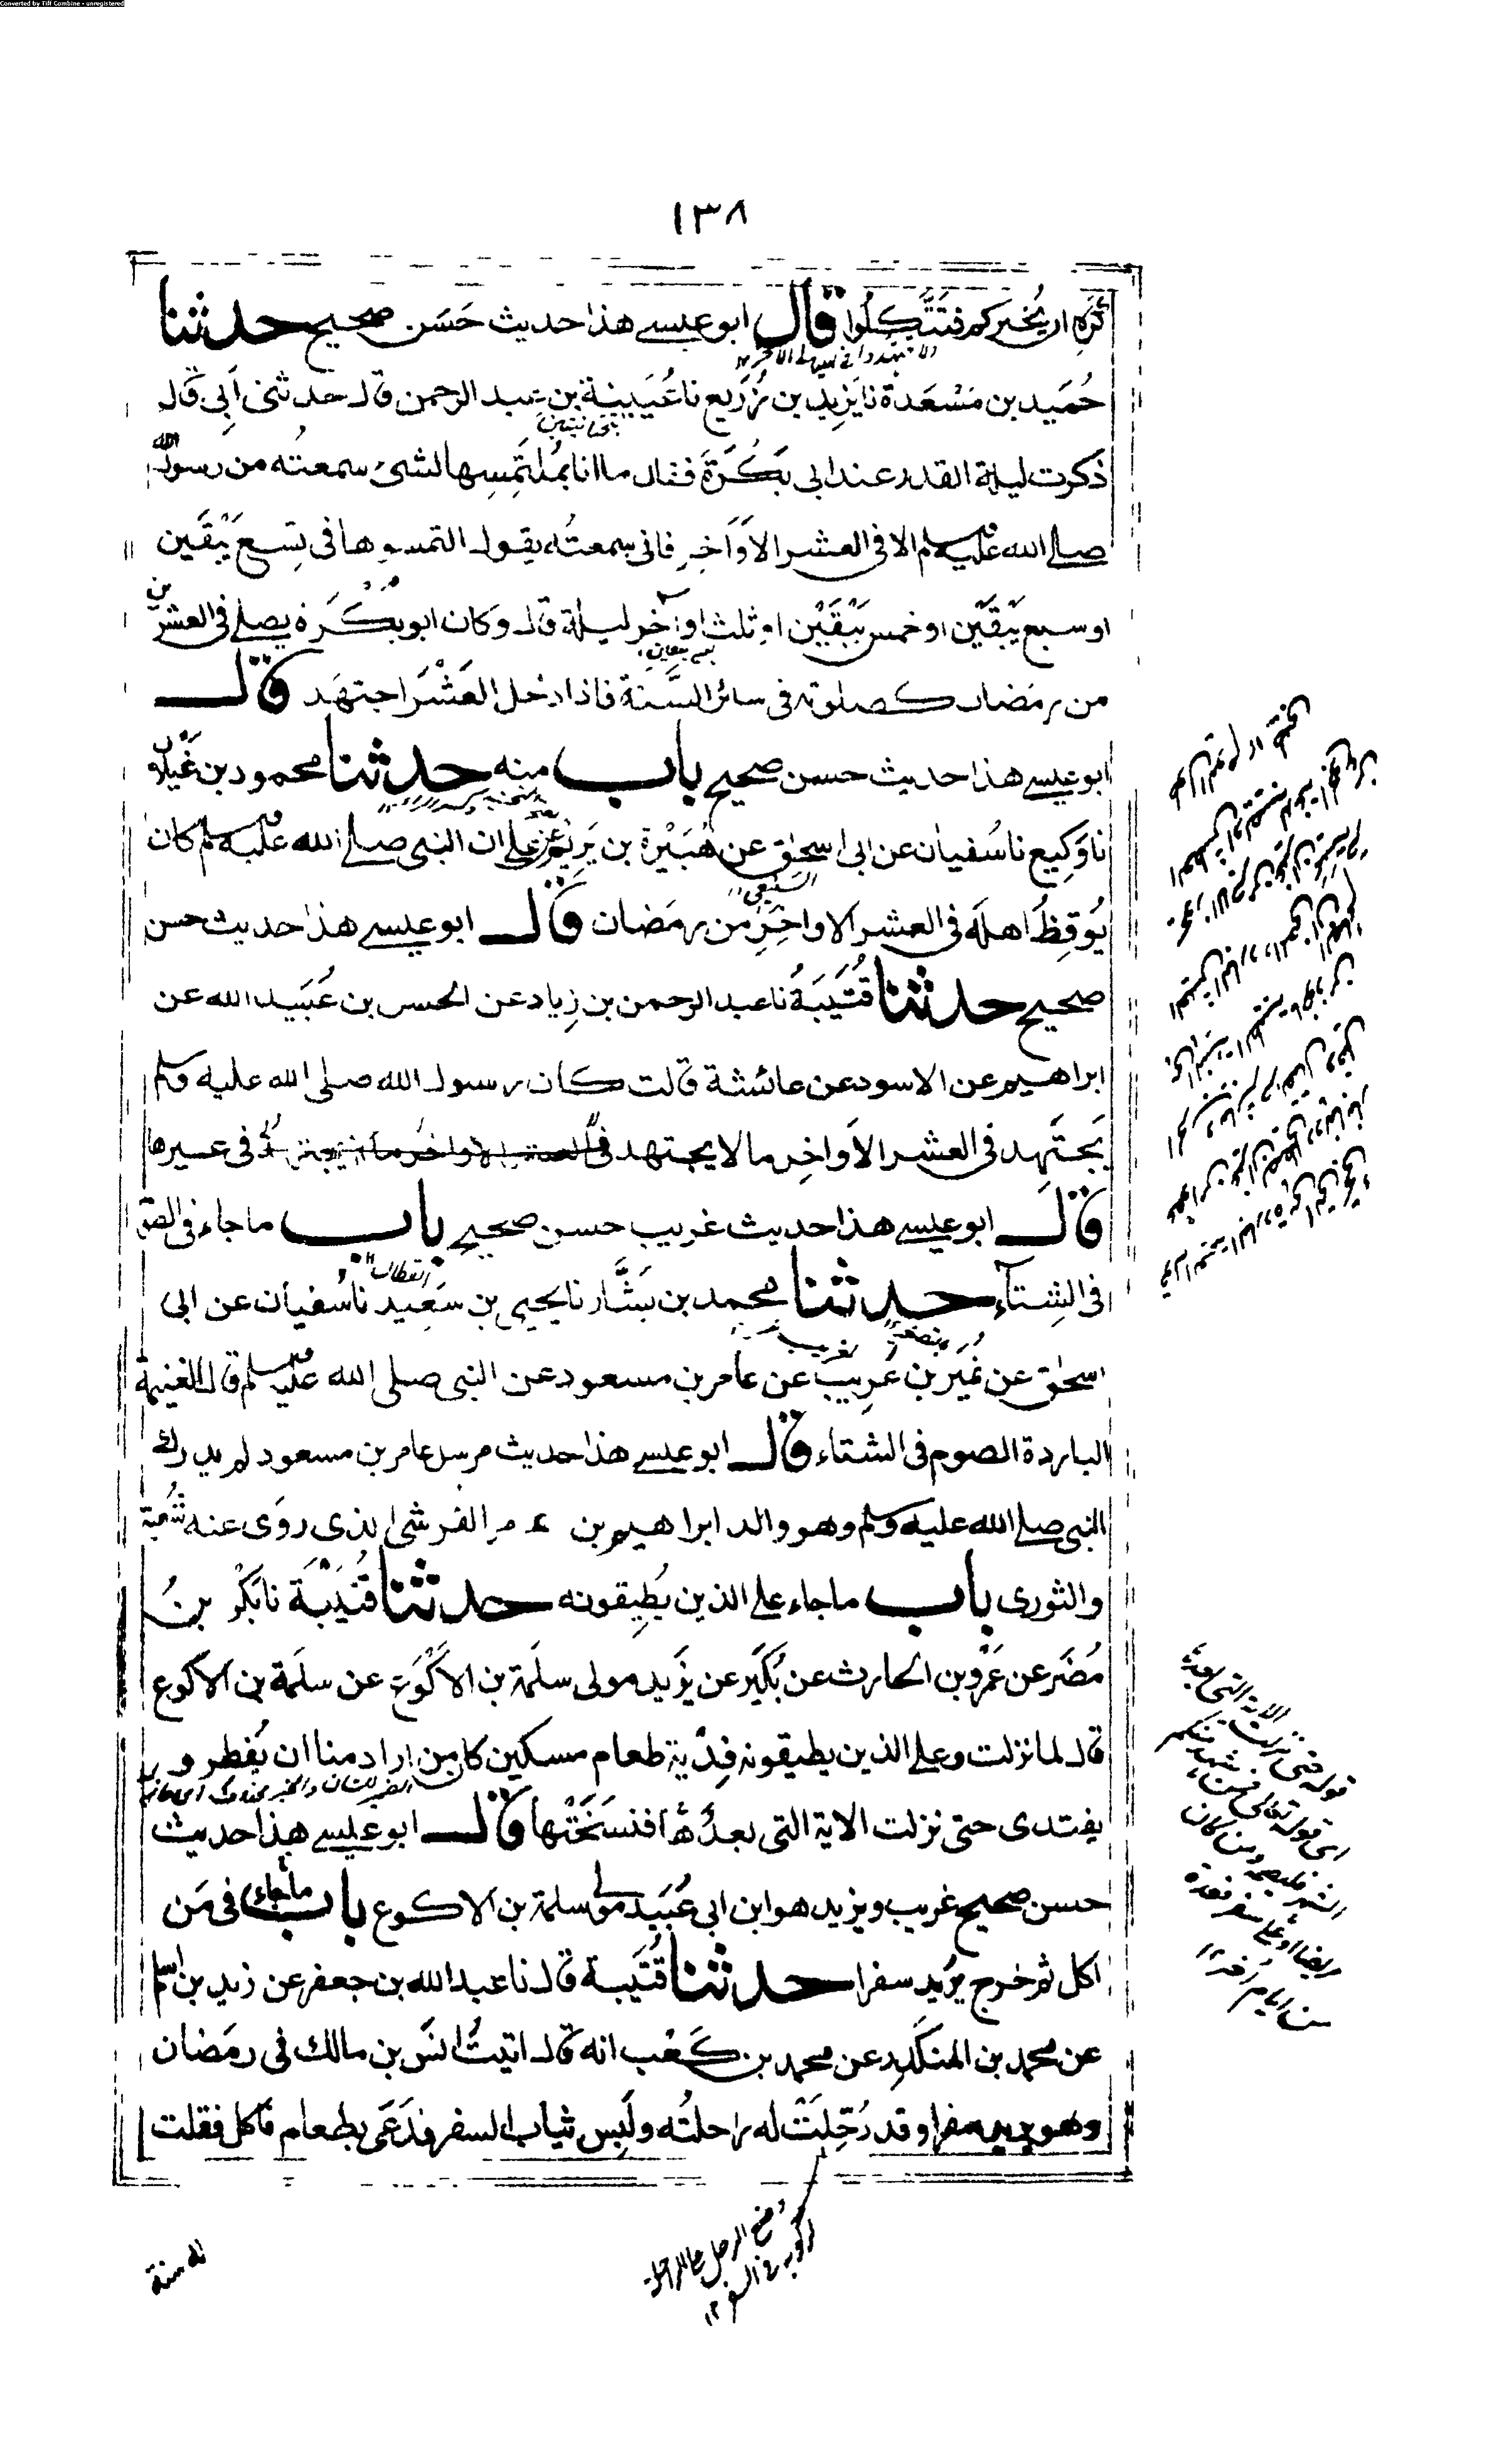 Converted by Tiff Combine - unregistered
١٣٨
كره ان يخبركم فتتكلوا قال ابو عيسے هذا حديث حَسَن صحيح حدثنا
حُمَيد بن مَسْعَدة نا يَزيد بن زُرَيع نا عُيَيْنة بن عبد الرحمن قال حدثنى اَبِى قال
ذكرت ليلة القدر عند ابى بَكْرَةَ فقال ما انا بمُلتَمِسِها لشئ سمعتُه من رسول الله
صلے الله عليه وسلم الا فى العشر الاَوَاخِرِ فانى سمعتُه يقول التمسوها فى تِسْعٍ يَبْقَين
او سبع يَبْقَيْن او خمس يَبْقَيْن او ثلث او اٰخر ليلة قال وكان ابو بَكْرَة يصلے فى العشرين
من رمضان كصلوته فى سائر السَّنة فاذا دخل العَشْرُ اجتهَد قال
ابو عيسے هذا حديث حسن صحيح باب منه حدثنا محمود بن غَيْلان
نا وَكِيع نا سُفيان عن ابى اسحٰق عن هُبَيْرة بن يَرِيْم عن علے ان النبى صلے الله عليه وسلم كان
يُوقِظُ اهلَه فى العشر الاواخِرِ من رمَضان قال ابو عيسے هذا حديث حسن
صحيح حدثنا قُتَيبَةُ نا عبد الرحمن بن زِياد عن الحسن بن عُبَيد الله عن
ابراهيم عن الاسود عن عائشة قالت كان رسول الله صلى الله عليه وسلم
يَجتَهِد فى العشر الاَواخِر ما لا يجتهد فى غيرها
قال ابو عيسے هذا حديث غريب حسن صحيح باب ما جاء فى الصوم
فى الشِتآء حدثنا محمد بن بَشَّار نا يحيى بن سَعِيد نا سفيان عن ابى
القطان
اسحٰق عن نُمَير بن عَرِيب عن عامر بن مسعود عن النبى صلى الله عليه وسلم قال الغنيمة
الباردة الصوم فى الشتاء قال ابو عيسے هذا حديث مرسل عامر بن مسعود لم يدرك
النبى صلے الله عليه وسلم وهو والد ابراهيم بن عامر القرشى الذى روَى عنه شُعبة
والثورى باب ما جاء علے الذين يُطِيقونه حدثنا قُتَيْبَة نا بَكْر بنُ
مُضَر عن عَمْرو بن الحارث عن بُكَيْر عن يَزيد مولى سلَمة بن الاَكْوَع عن سلَمة بن الاكوع
قال لما نزلت وعلے الذين يطيقونه فِدْية طعام مسكين كان من اراد منا ان يُفطر و
يفتدى حتى نزلت الاية التى بعدَها فنسَخَتْها قال ابو عيسے هذا حديث
حسن صحيح غريب ويزيد هو ابن ابى عُبَيد مولى سلمة بن الاكوع باب ما جاء فى مَن
اكل ثم خرج يريد سفرا حدثنا قُتَيبة قال نا عبد الله بن جعفر عن زيد بن اسلم
عن محمد بن المنكَدِر عن محمد بن كَعْب انه قال اتيتُ انَسَ بن مالك فى رمَضان
وهو يريد سفرا وقد رُحِّلَتْ له راحلتُه ولَبِس ثيابَ السفر فدَعَى بطعام فاكل فقلت
قوله حتى نزلت الآية التى بعدها
اى قوله تعالى فمن شهد منكم
الشهر فليصمه ومن كان
مريضا او على سفر فعدة
من ايام اخر ١٢
له سنة